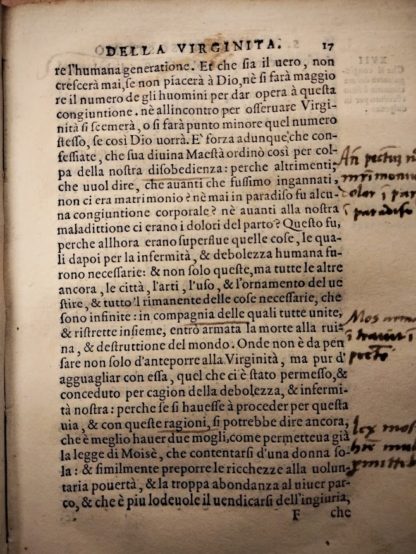 DELLA VIRGINITA. 17
re l'humana generatione. Et che sia il uero, non
crescerà mai, se non piacerà à Dio, nè si farà maggio
re il numero de gli huomini per dar opera à questa
congiuntione. nè allincontro per osseruare Virgi-
nità si scemerà, o si farà punto minore quel numero
stesso, se così Dio uorrà. E' forza adunque, che con-
fessiate, che sua diuina Maestà ordinò così per col-
pa della nostra disobedienza: perche altrimenti,
che uuol dire, che auanti che fussimo ingannati,
non ci era matrimonio? nè mai in paradiso fu alcu-
na congiuntione corporale? nè auanti alla nostra
maladittione ci erano i dolori del parto? Questo fu,
perche allhora erano superflue quelle cose, le qua-
li dapoi per la infermità, & debolezza humana fu-
rono necessarie: & non solo queste, ma tutte le altre
ancora, le città, l'arti, l'uso, & l'ornamento del ue
stire, & tutto'l rimanente delle cose necessarie, che
sono infinite: in compagnia delle quali tutte unite,
& ristrette insieme, entrò armata la morte alla rui-
na, & destruttione del mondo. Onde non è da pen-
sare non solo d'anteporre alla Virginità, ma pur d'
agguagliar con essa, quel che ci è stato permesso, &
conceduto per cagion della debolezza, & infermi-
tà nostra: perche se si hauesse à proceder per questa
uia, & con queste ragioni, si potrebbe dire ancora,
che è meglio hauer due mogli, come permetteua già
la legge di Moisè, che contentarsi d'una donna so-
la: & similmente preporre le ricchezze alla uolun-
taria pouertà, & la troppa abondanza al uiuer par-
co, & che è piu lodeuole il uendicarsi dell'ingiuria,
F che
paradiso
Mos
lex mos